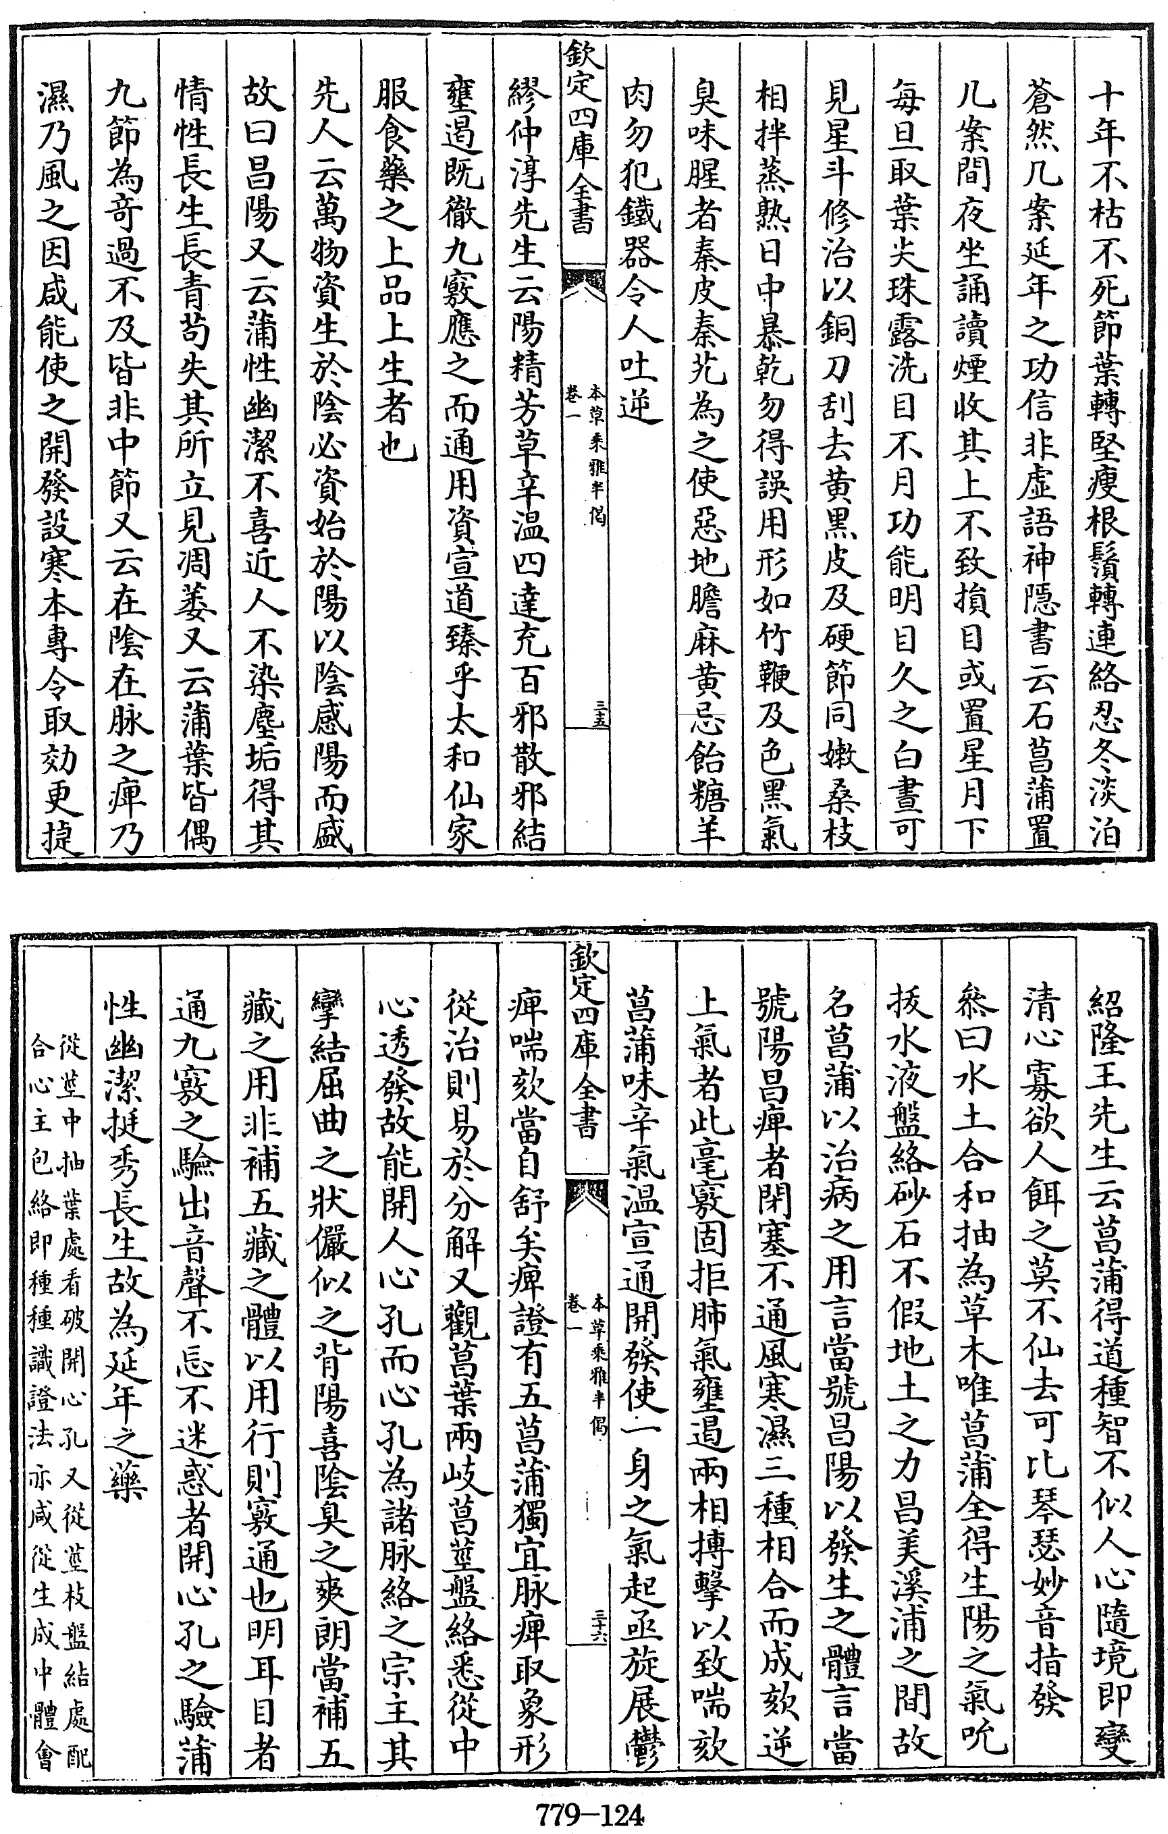 十年不枯不死節葉轉堅瘦根鬚轉連絡忍冬淡泊
蒼然几案延年之功信非虛語神隱書云石菖蒲置
几案間夜坐誦讀煙收其上不致損目或置星月下
每旦取葉尖珠露洗目不月功能明目久之白晝可
見星斗修治以銅刀刮去黄黑皮及硬節同嫩桑枝
相拌蒸熟日中暴乾勿得誤用形如竹鞭及色黑氣
臭味腥者秦皮秦艽為之使惡地膽麻黄忌飴糖羊
肉勿犯鐵器令人吐逆
欽定四庫全書
本草乘雅半偈
卷一
三五
繆仲淳先生云陽精芳草辛温四達充百邪散邪結
壅遏既徹九竅應之而通用資宣道臻乎太和仙家
服食藥之上品上生者也
先人云萬物資生於陰必資始於陽以陰感陽而盛
故曰昌陽又云蒲性幽潔不喜近人不染塵垢得其
情性長生長青苟失其所立見凋萎又云蒲葉皆偶
九節為奇過不及皆非中節又云在陰在脉之痺乃
濕乃風之因咸能使之開發設寒本專令取効更捷
紹隆王先生云菖蒲得道種智不似人心隨境即變
清心寡欲人餌之莫不仙去可比琴瑟妙音指發
叅曰水土合和抽為草木唯菖蒲全得生陽之氣吮
拔水液盤絡砂石不假地土之力昌美溪浦之間故
名菖蒲以治病之用言當號昌陽以發生之體言當
號陽昌痺者閉塞不通風寒濕三種相合而成欬逆
上氣者此毫竅固拒肺氣壅遏兩相搏擊以致喘欬
菖蒲味辛氣温宣通開發使一身之氣起亟旋展鬱
欽定四庫全書
本草乘雅半偈
卷一
三十六
痺喘欬當自舒矣痺證有五菖蒲獨宜脉痺取象形
從治則易於分解又觀菖葉兩岐菖莖盤絡悉從中
心透發故能開人心孔而心孔為諸脉絡之宗主其
攣結屈曲之狀儼似之背陽喜陰臭之爽朗當補五
藏之用非補五藏之體以用行則竅通也明耳目者
通九竅之驗出音聲不忘不迷惑者開心孔之驗蒲
性幽潔挺秀長生故為延年之藥
從莖中抽葉處看破開心孔又從莖枝盤結處配
合心主包絡即種種識證法亦咸從生成中體會
779-124